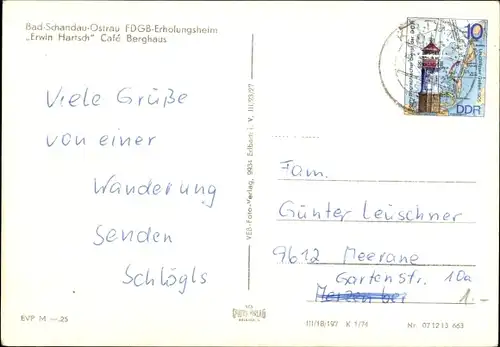 Bad-Schandau-Ostrau FDGB-Erholungsheim
„Erwin Hartsch" Café Berghaus
10
DDR
Viele Grüße
von einer
Wanderung
senden
Schlögls
VEB-Foto-Verlag, 9934 Erlbach i. V. III/23/27
Fam.
Günter Leuschner
9612 Meerane
Gartenstr. 10a
1.-
EVP M —.25
III/18/197 K 1/76
Nr. 07 12 13 663